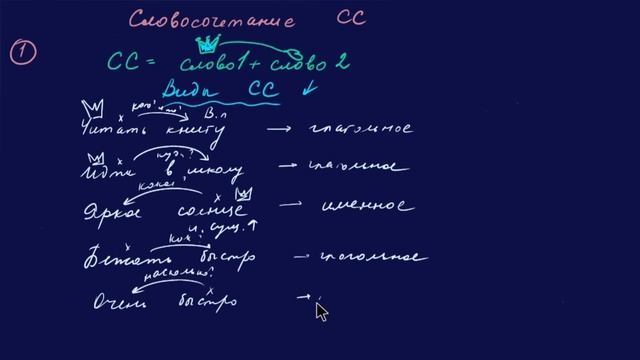 Словосочетание СС
1
СС = слово1 + слово 2
Виды СС
кого? что? В.п
Читать книгу → глагольное
куда?
Идти в школу → глагольное
какое?
Яркое солнце → именное
и. сущ.
как?
Бежать быстро → глагольное
насколько?
Очень быстро →